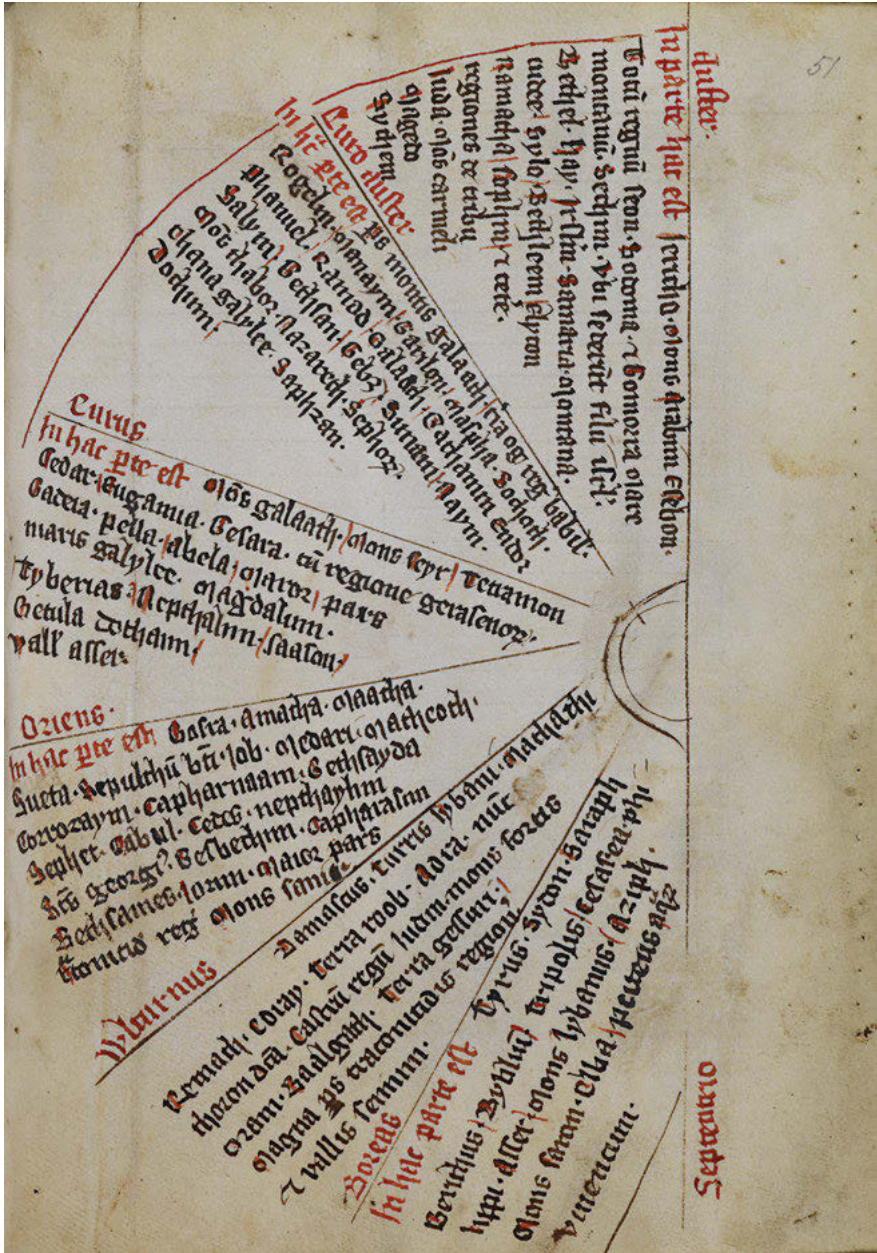 51
Auster.
In parte hac est Jericho. Mons Abarim Esebon.
Totū regnū seon. Sodoma. ⁊ Gomorra Mare
montanū. Sechim. Vbi sederūt filii isrl'.
Bethel. Hay. Jrlm. Samaria. Momana.
iudee. Sylo. Bethleem. Elyton
Ramatha sophim ⁊ cete.
regiones de tribu
Juda. Mōs carmeli
Magedo
Sychem
Euro Auster
In hc pte est ps montis galaath tra og reg babil.
Rogelim. Manaym. Gaulon. Maspha. Sochoth.
Phanuel. Ramod. Galaad. Endor
Salym. Bethsan. Naym.
Mōs thabor. Nazareth. Sephor.
chana galylee. Saphzan.
Dothim
Eurus
In hac pte est Mōs galaath. Mons seyr. Tetramon
Cedar. Cesara. cū regione gerasenor
Gadera. pella. abela. Maror. pars
maris galylee. Magdalum.
Tyberias. Neptalim. saason.
Betula Dothaim.
vall' asser.
Oriens.
In hac pte est Bosra. Amatha. Maacha.
Sueta. Sepulchrū bti iob. Medari. Mathcoth.
Corozaym. Capharnaam. Bethsayda
Sephet. Cabul. Cedes. neptaylim
Scs georgi. Besbethim. Capharasim
Bethsames. iorim. Maior pars
tconitid reg Mons sanir
Wlturnus
Damascus. Turris lybani. Machathi
Remath. Coray. Terra roob. Adra. nūc
thoron dca. Castrū regū sudim. mons fortis
Orani. Baalgath. Terra gessuri.
Magna ps traconitidis region
⁊ vallis sennim.
Boreas
In hac parte est Tyrus. Sydon. Saraph
Berithus. Byblin. Tripolis. Cesarea phi
lippi. asser. Mons lybanus. Aziph.
Mons saron. puteus aqz
vinencium.
Septentrio